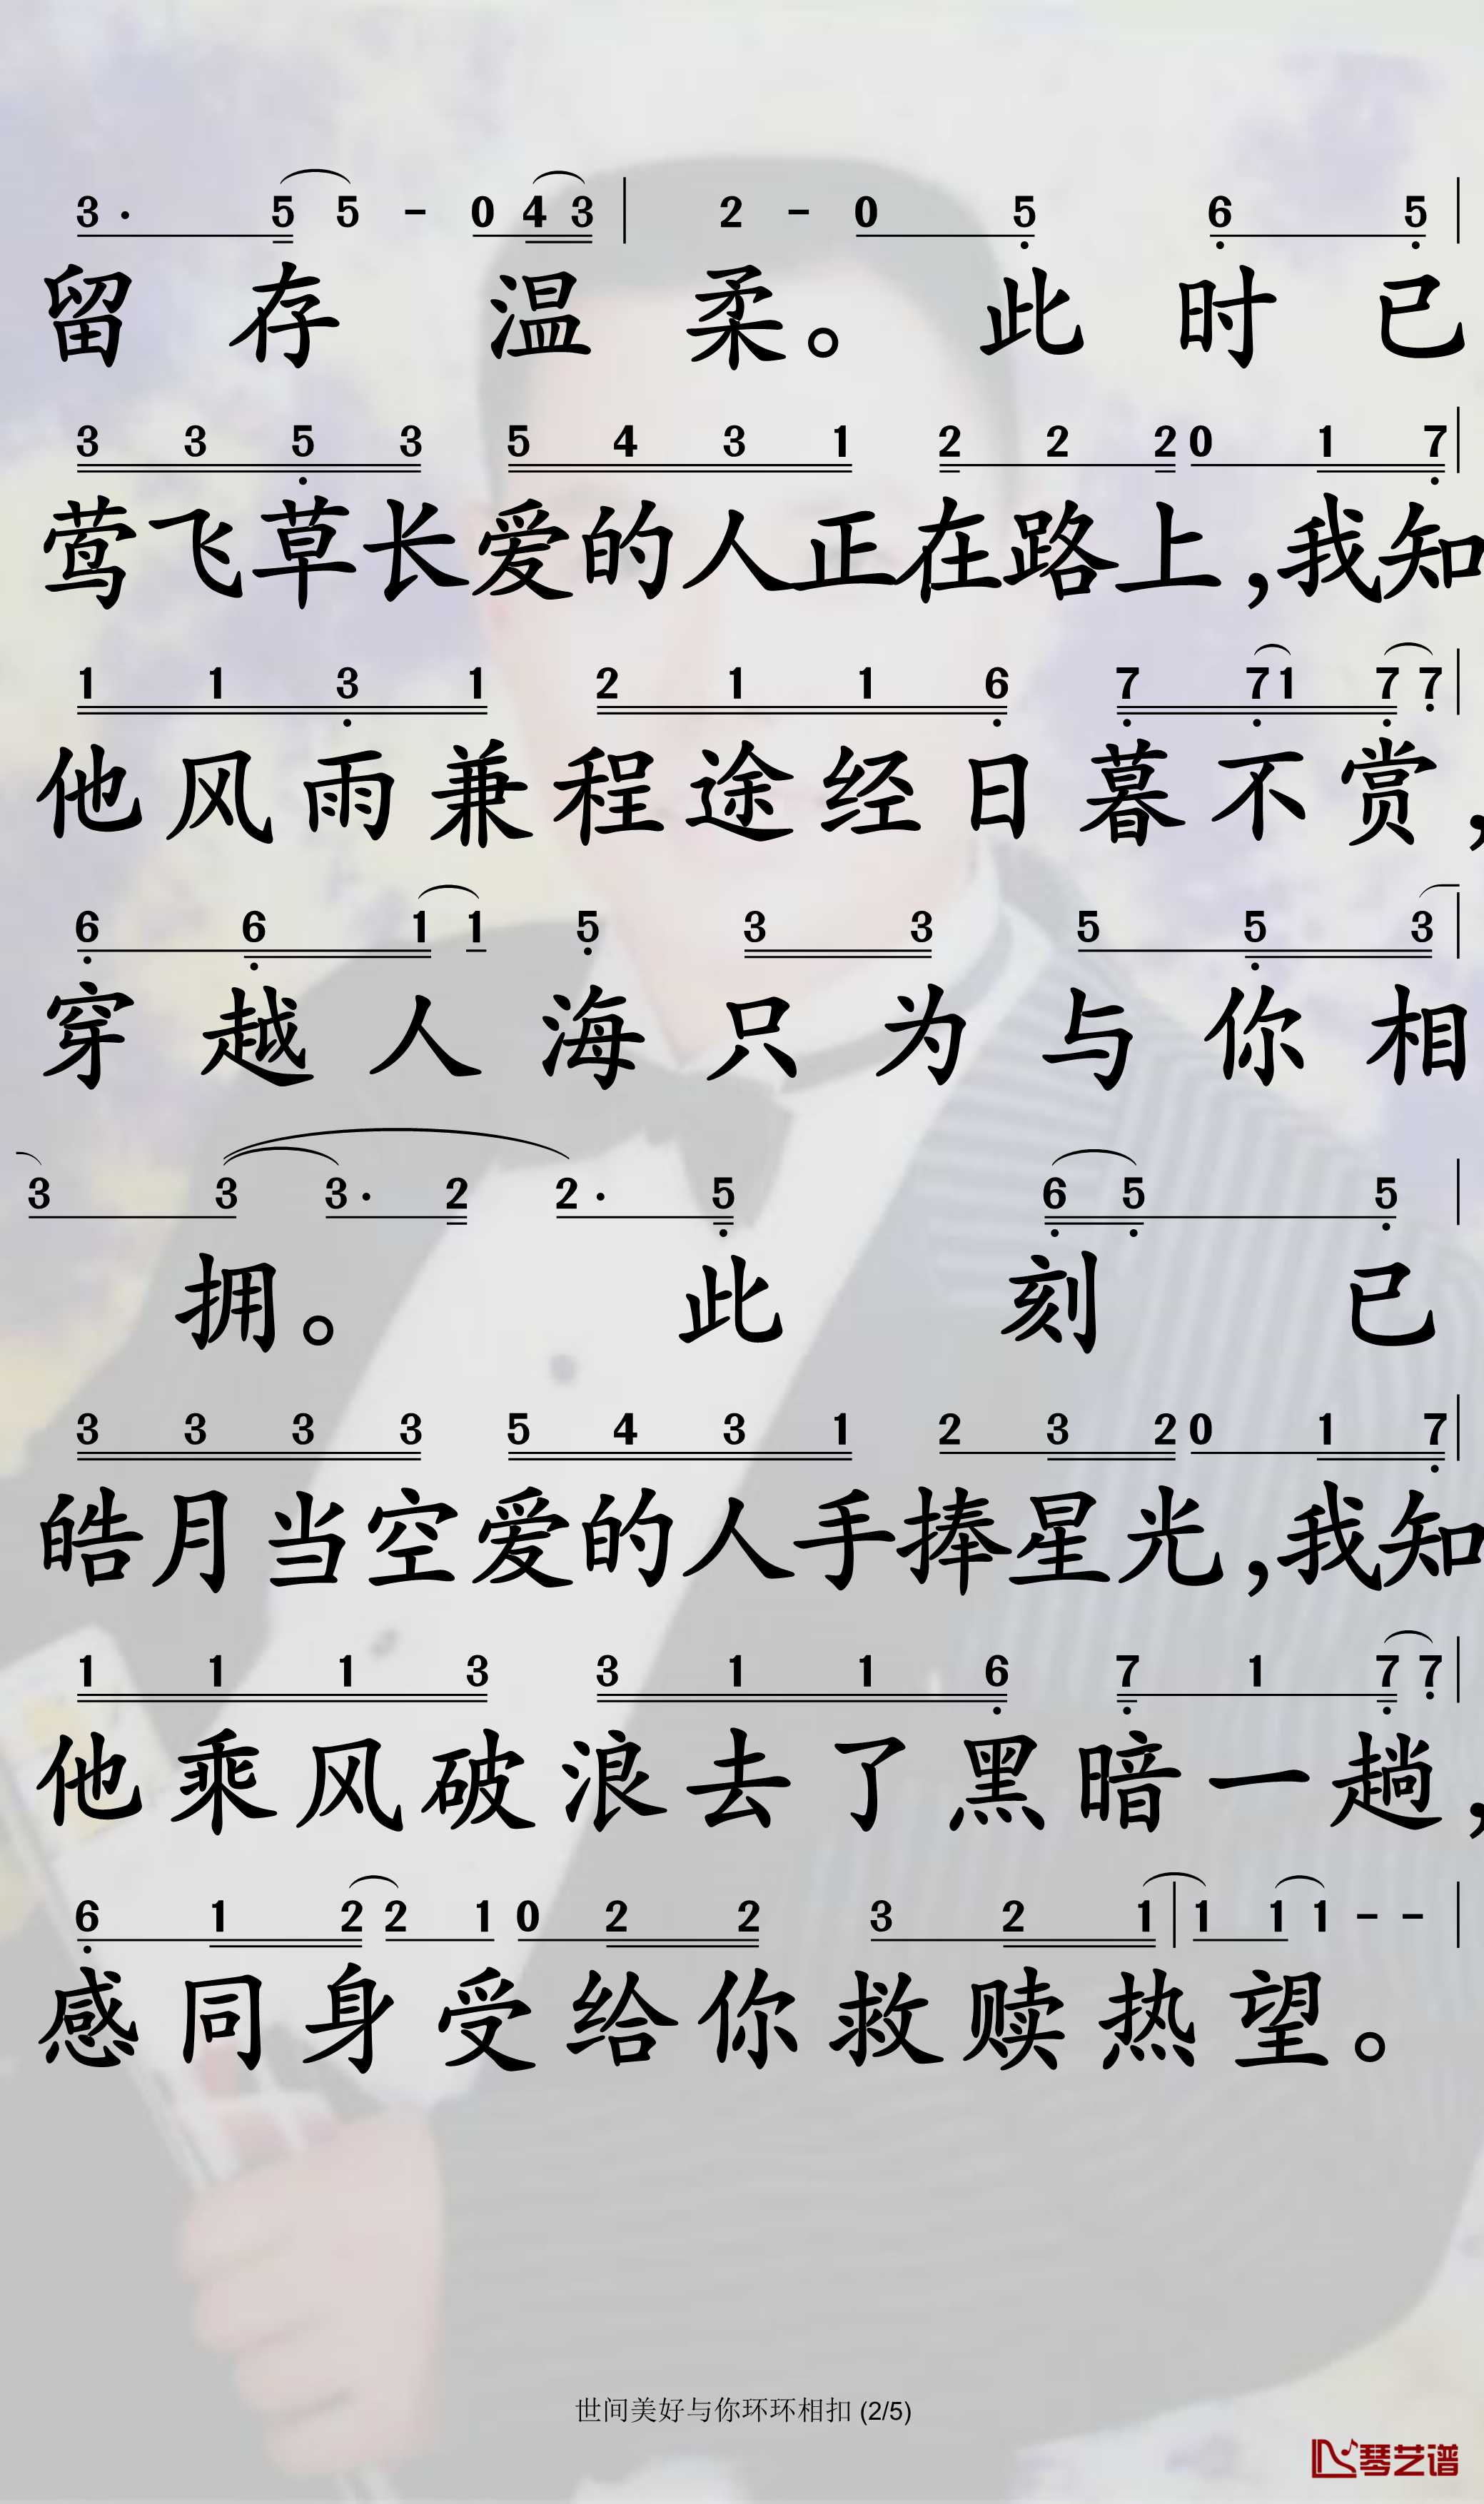 3· 5 5 - 0 4 3 | 2 - 0 5 6 5 |
留存温柔。此时已
3 3 5 3 5 4 3 1 2 2 2 0 1 7 |
莺飞草长爱的人正在路上,我知
1 1 3 1 2 1 1 6 7 7 1 7 7 |
他风雨兼程途经日暮不赏,
6 6 1 1 5 3 3 5 5 3 |
穿越人海只为与你相
3 3 3· 2 2· 5 6 5 5 |
拥。此刻已
3 3 3 3 5 4 3 1 2 3 2 0 1 7 |
皓月当空爱的人手捧星光,我知
1 1 1 3 3 1 1 6 7 1 7 7 |
他乘风破浪去了黑暗一趟,
6 1 2 2 1 0 2 2 3 2 1 | 1 1 1 - - |
感同身受给你救赎热望。
世间美好与你环环相扣 (2/5)
琴艺谱